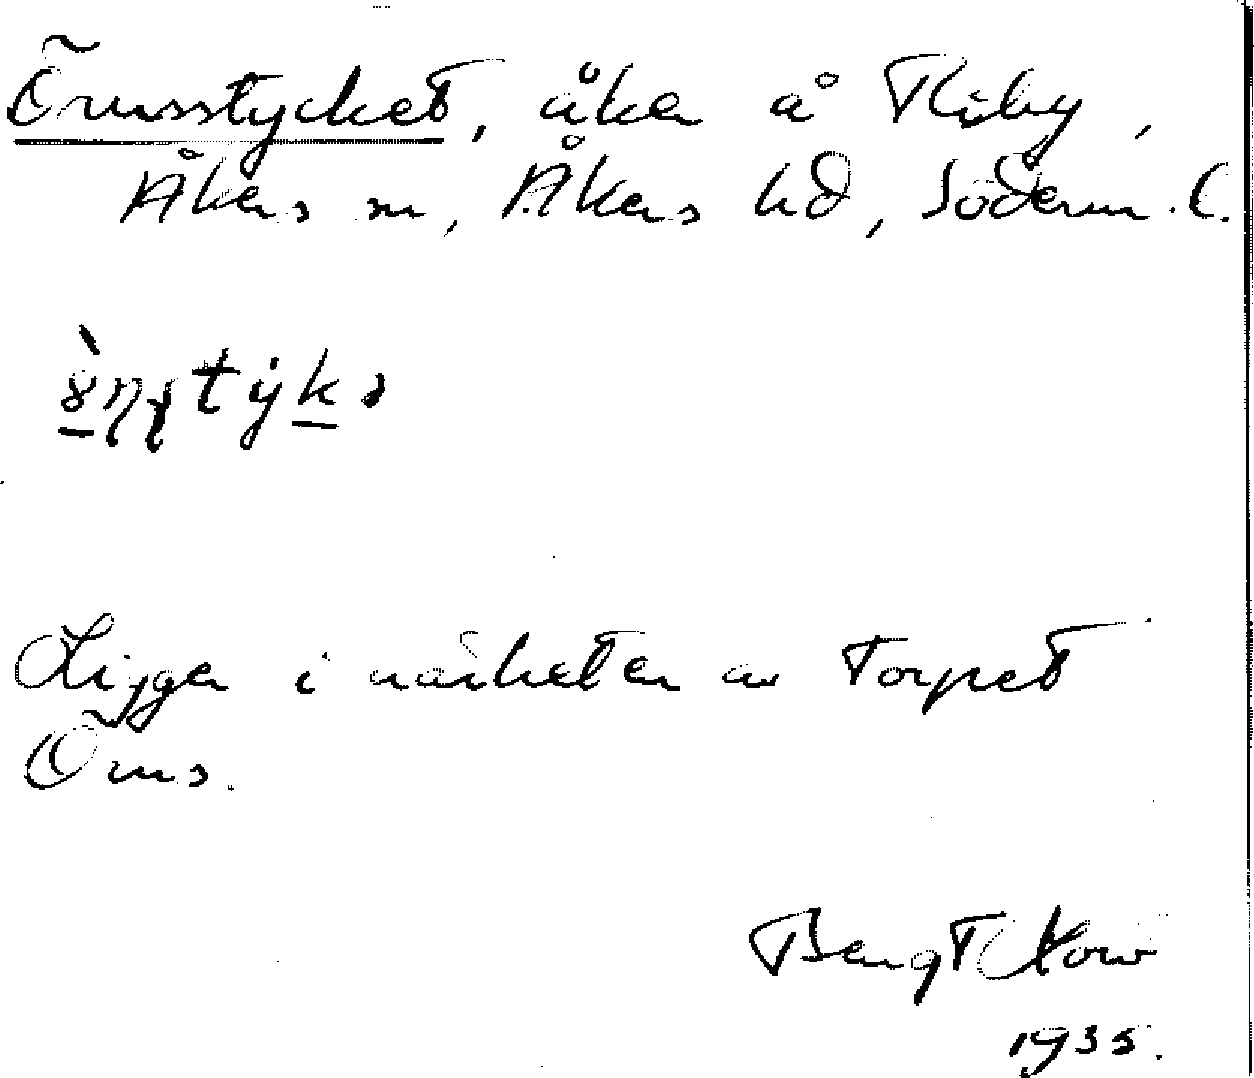 Örnsstycket, åker å Kiby,
Åkers sn, Åkers hd, Söderm. l.
Ligger i närheten av torpet
Örns.
Bengt
1935.